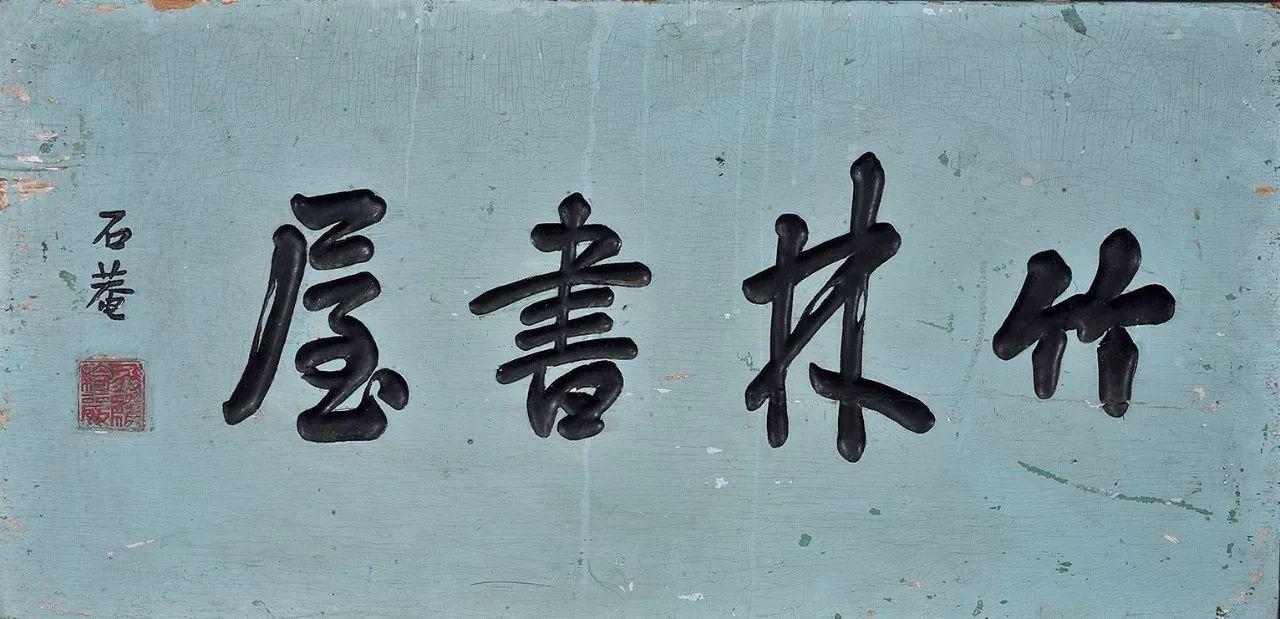 竹林書屋
石菴